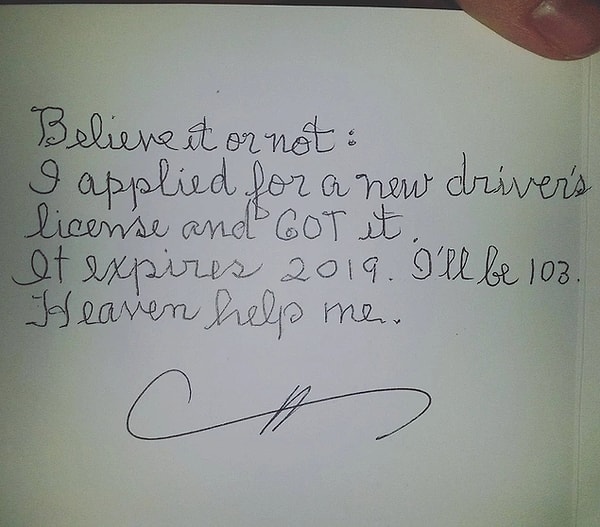 Believe it or not :
I applied for a new driver's
license and GOT it.
It expires 2019. I'll be 103.
Heaven help me.